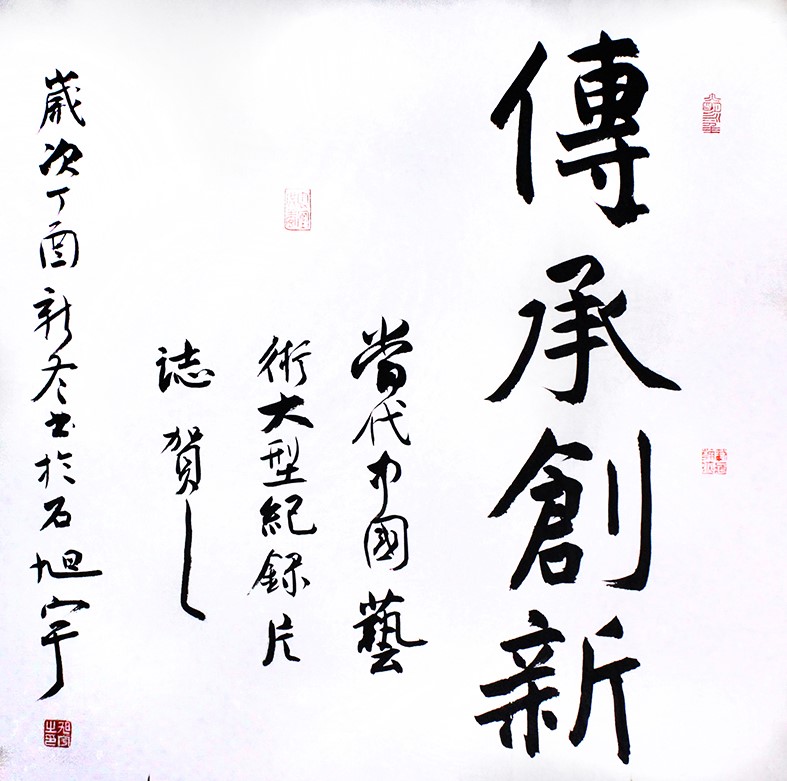 傳承創新
當代中國藝
術大型紀録片
誌賀
歲次丁酉新冬書於石旭宇
旭宇之印